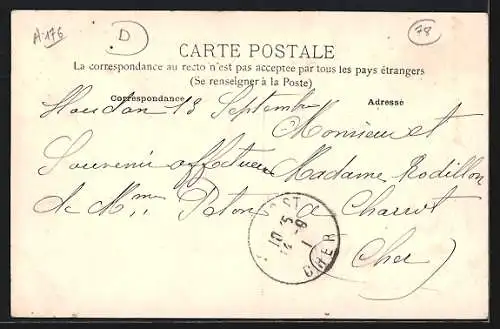 A-176
D
78
CARTE POSTALE
La correspondance au recto n'est pas acceptée par tous les pays étrangers
(Se renseigner à la Poste)
Correspondance
Houdan 13 Septembre
Souvenir affectueux
de Mme Paton
Adresse
Monsieur et
Madame Rodillon
à Charost
Cher
OST
15
14 -9
1
CHER